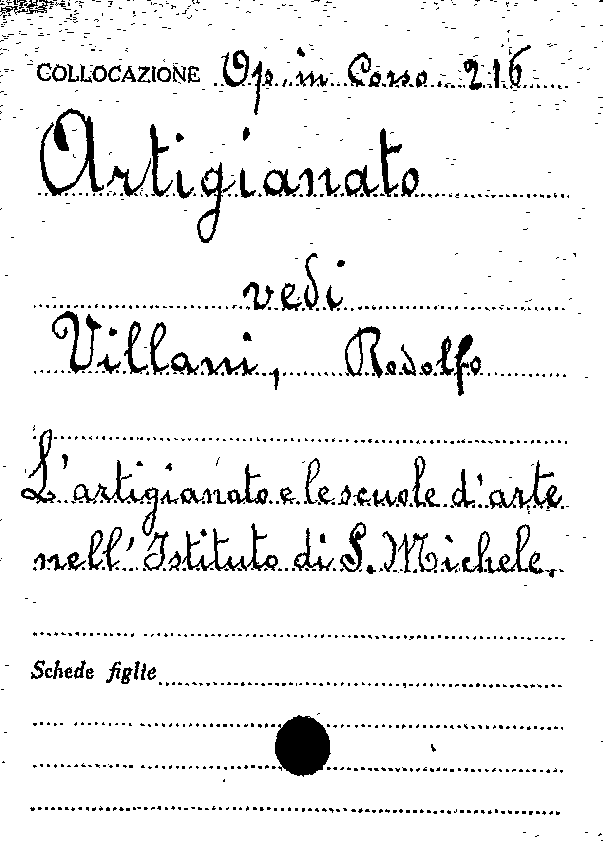 COLLOCAZIONE Op. in Corso 216
Artigianato
vedi
Villani, Rodolfo
L'artigianato e le scuole d'arte
nell'Istituto di S. Michele.
Schede figlie